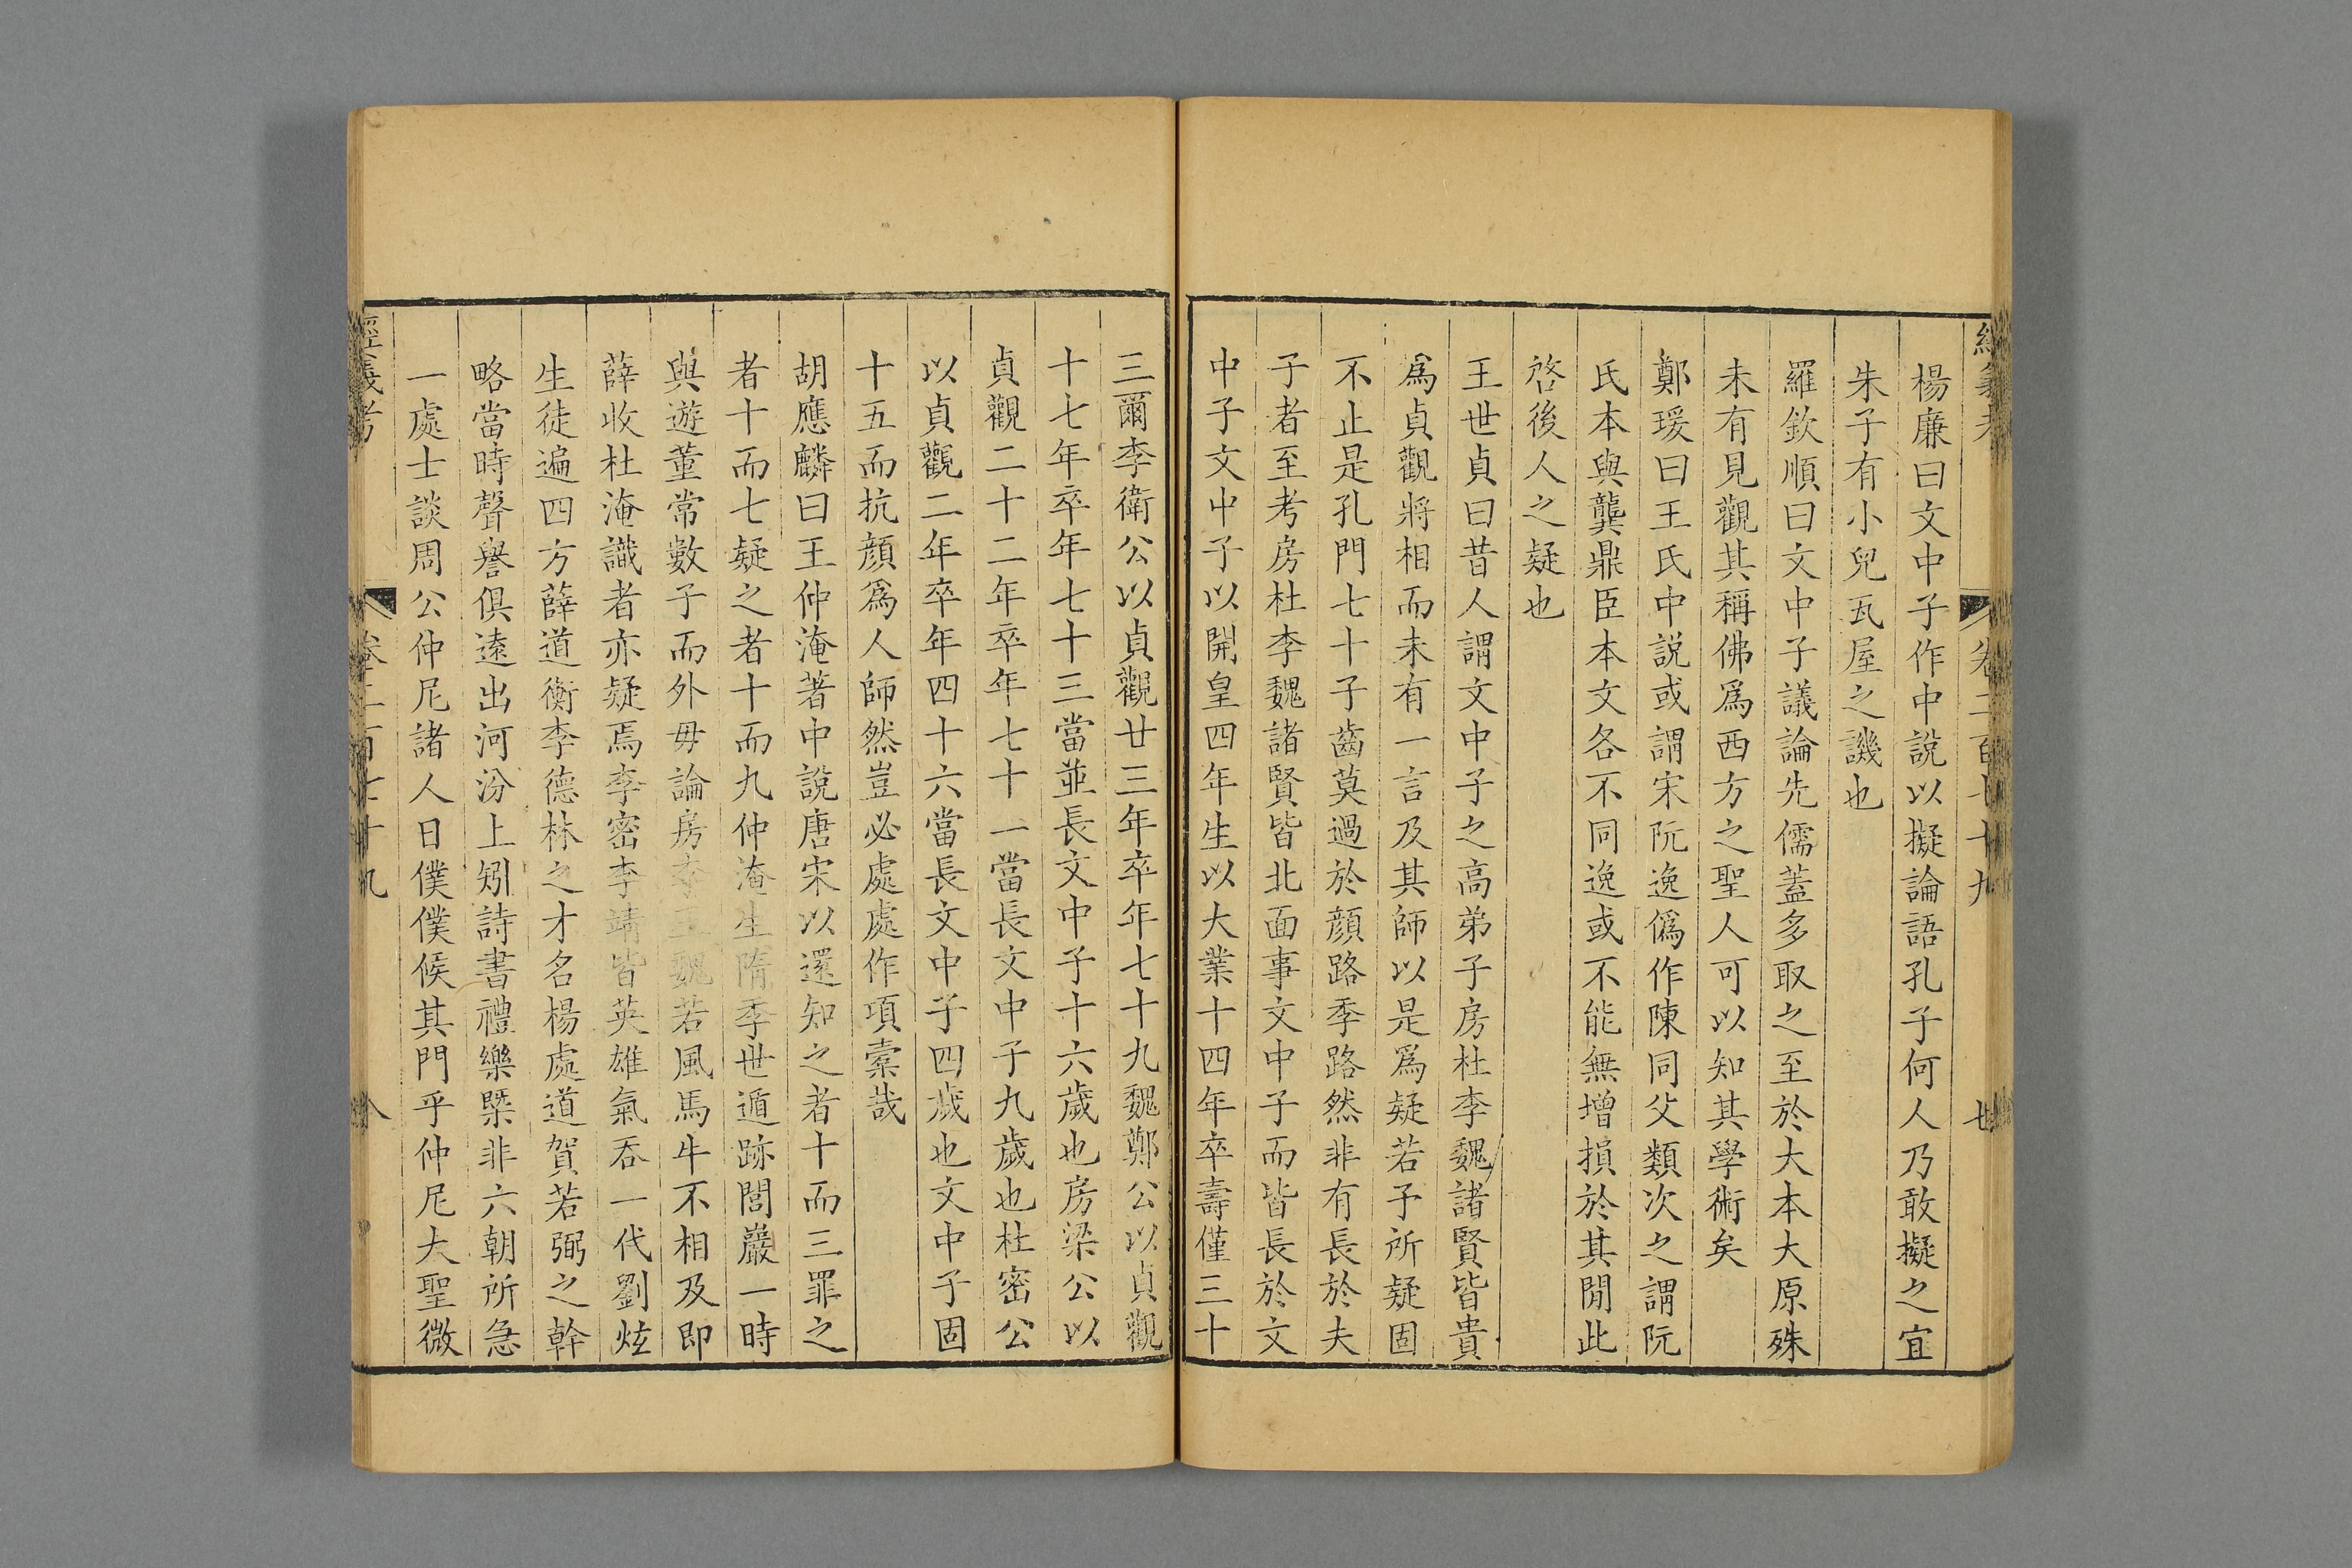 楊廉曰文中子作中說以擬論語孔子何人乃敢擬之宜
朱子有小兒瓦屋之譏也
羅欽順曰文中子議論先儒蓋多取之至於大本大原殊
未有見觀其稱佛爲西方之聖人可以知其學術矣
鄭瑗曰王氏中説或謂宋阮逸僞作陳同父類次之謂阮
氏本與龔鼎臣本文各不同逸或不能無增損於其閒此
啓後人之疑也
王世貞曰昔人謂文中子之高弟子房杜李魏諸賢皆貴
爲貞觀將相而未有一言及其師以是爲疑若予所疑固
不止是孔門七十子齒莫過於顔路季路然非有長於夫
子者至考房杜李魏諸賢皆北面事文中子而皆長於文
中子文中子以開皇四年生以大業十四年卒壽僅三十
三爾李衛公以貞觀廿三年卒年七十九魏鄭公以貞觀
十七年卒年七十三當並長文中子十六歲也房梁公以
貞觀二十二年卒年七十一當長文中子九歲也杜密公
以貞觀二年卒年四十六當長文中子四歲也文中子固
十五而抗顔爲人師然豈必處處作項橐哉
胡應麟曰王仲淹著中說唐宋以還知之者十而三罪之
者十而七疑之者十而九仲淹生隋季世遁跡閭巖一時
與遊董常數子而外毋論房李王魏若風馬牛不相及即
薛收杜淹識者亦疑焉李密李靖皆英雄氣吞一代劉炫
生徒遍四方薛道衡李德林之才名楊處道賀若弼之幹
略當時聲譽俱遠出河汾上矧詩書禮樂槩非六朝所急
一處士談周公仲尼諸人日僕僕候其門乎仲尼大聖微
經義考 卷二百七十九 八